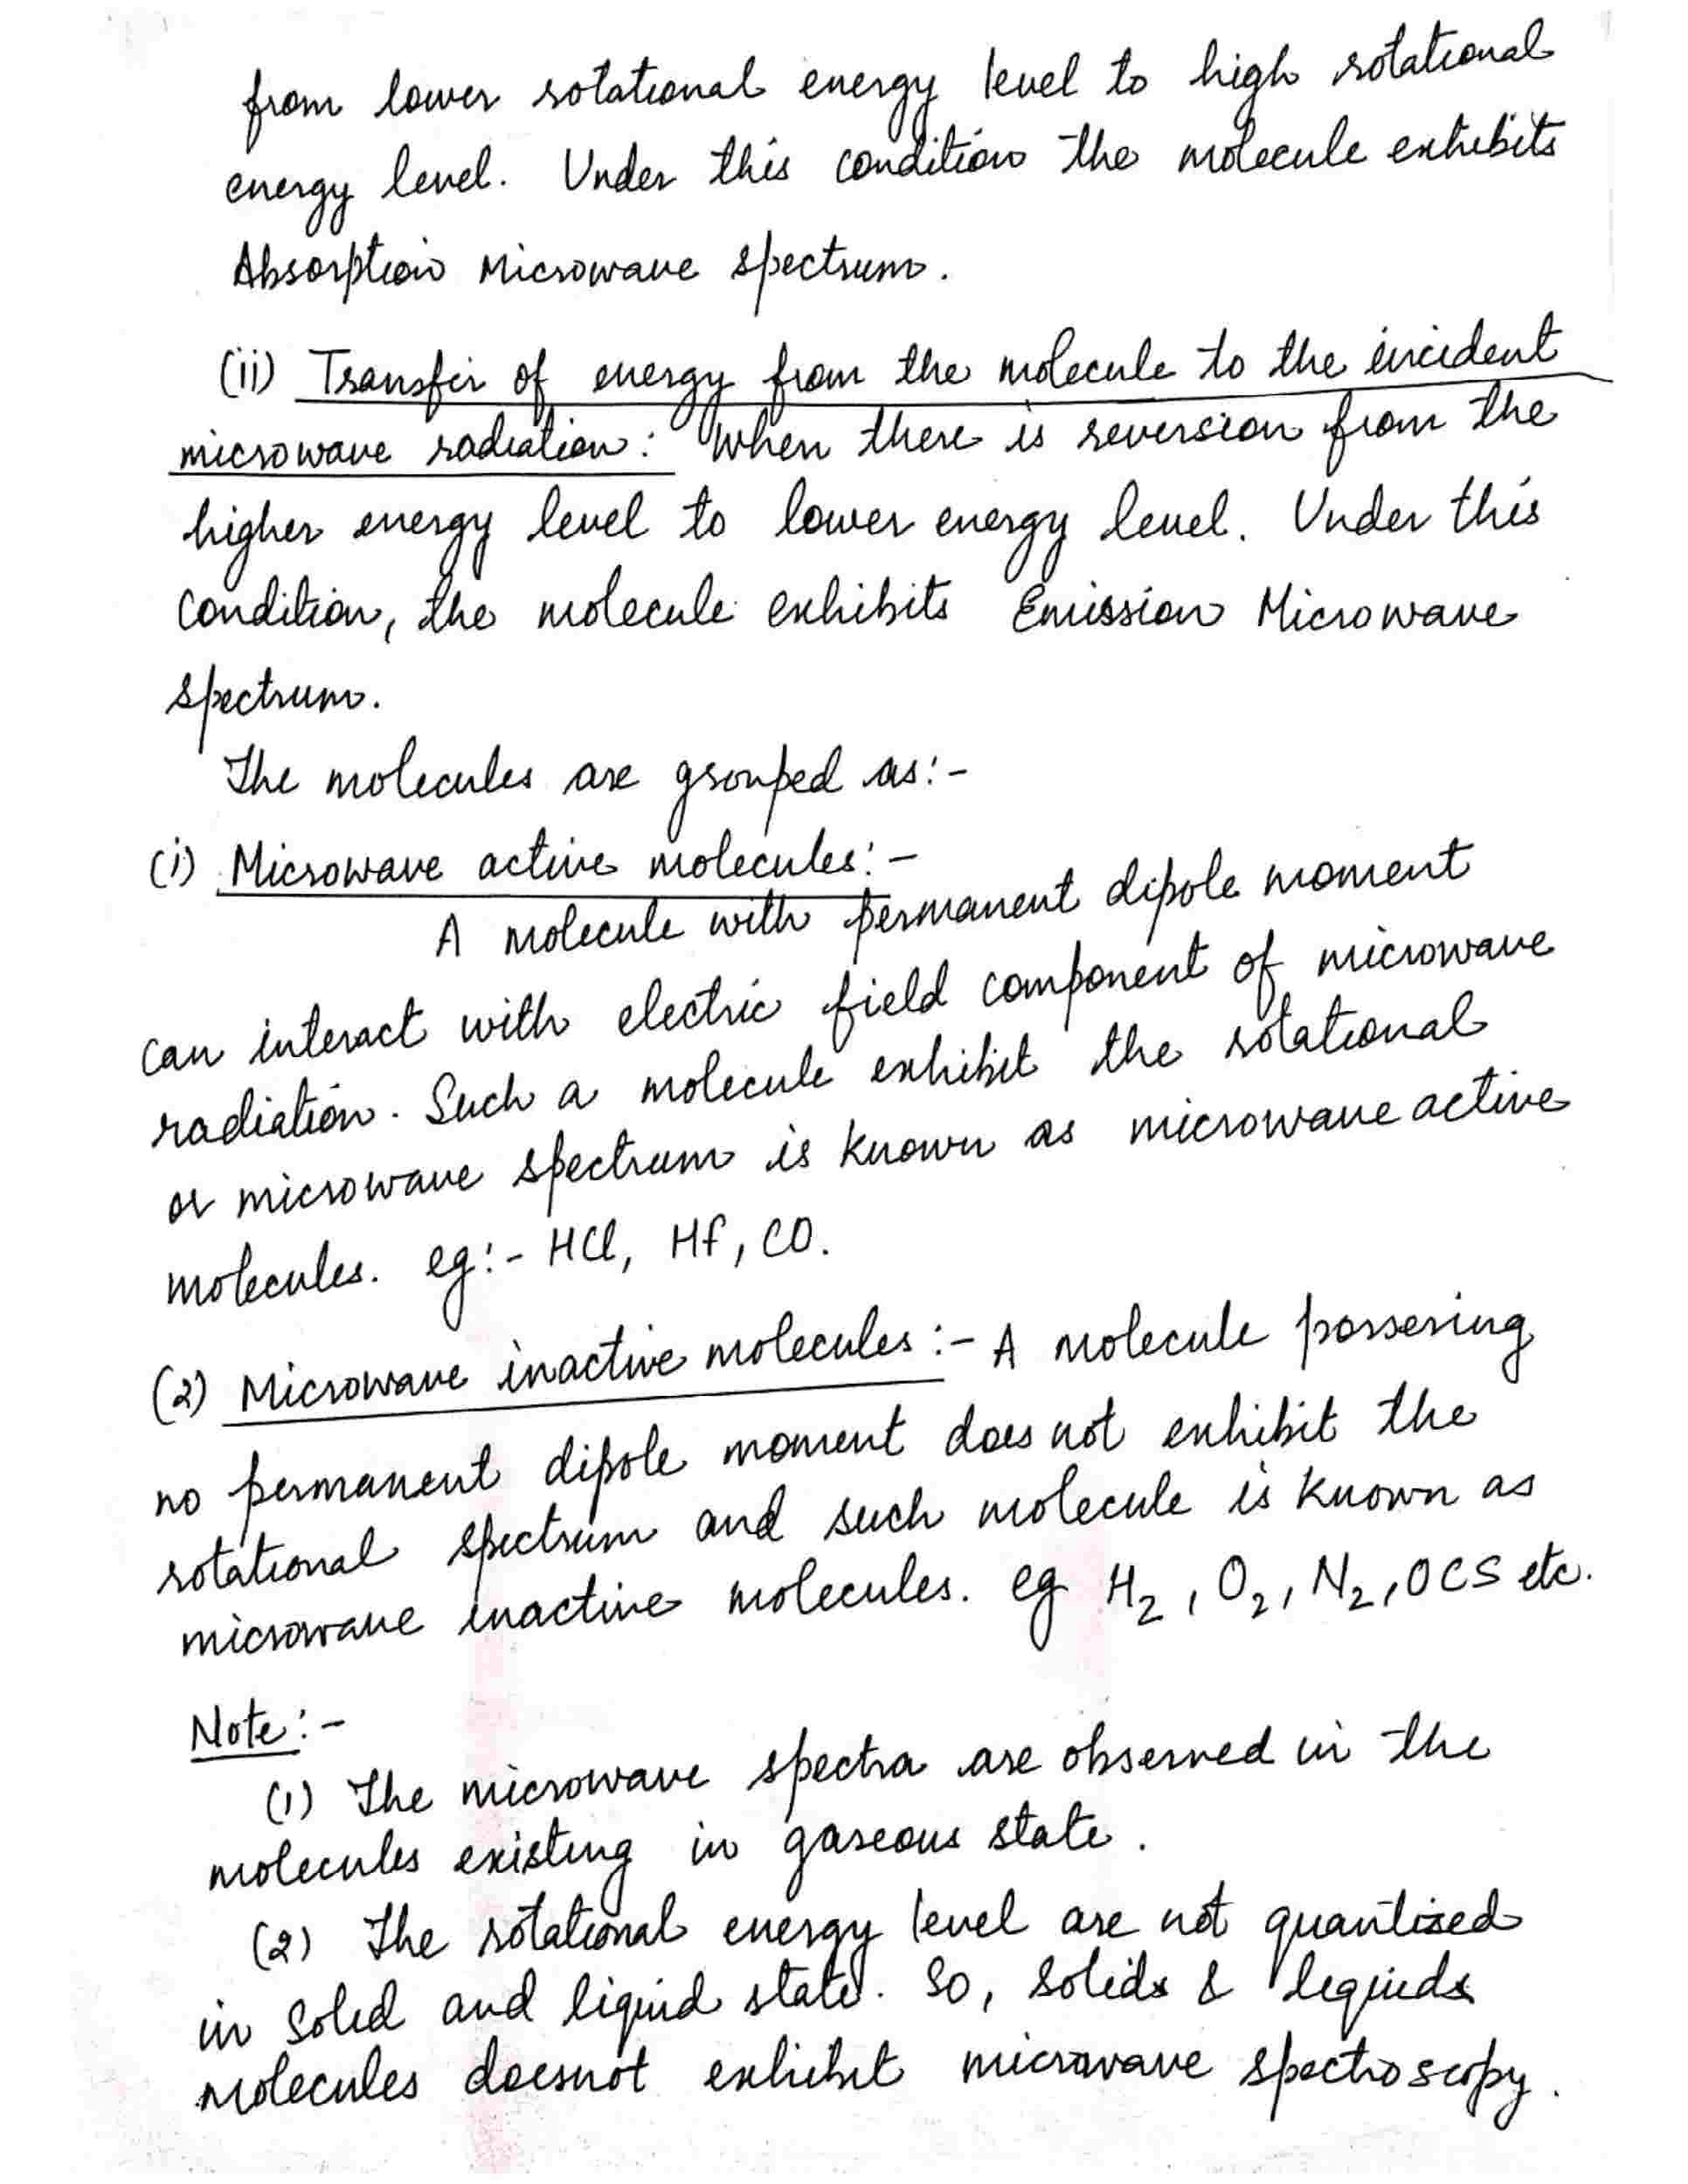 from lower rotational energy level to high rotational
energy level. Under this condition the molecule exhibits
Absorption Microwave spectrum.
(ii) Transfer of energy from the molecule to the incident
microwave radiation: When there is reversion from the
higher energy level to lower energy level. Under this
condition, the molecule exhibits Emission Microwave
spectrum.
The molecules are grouped as:-
(i) Microwave active molecules:-
A molecule with permanent dipole moment
can interact with electric field component of microwave
radiation. Such a molecule exhibit the rotational
or microwave spectrum is known as microwave active
molecules. eg:- HCl, Hf, CO.
(2) Microwave inactive molecules:- A molecule possesing
no permanent dipole moment does not exhibit the
rotational spectrum and such molecule is known as
microwave inactive molecules. eg H₂, O₂, N₂, OCS etc.
Note:-
(1) The microwave spectra are observed in the
molecules existing in gaseous state.
(2) The rotational energy level are not quantized
in solid and liquid state. So, solids & liquids
molecules doesnot exhibit microwave spectroscopy.